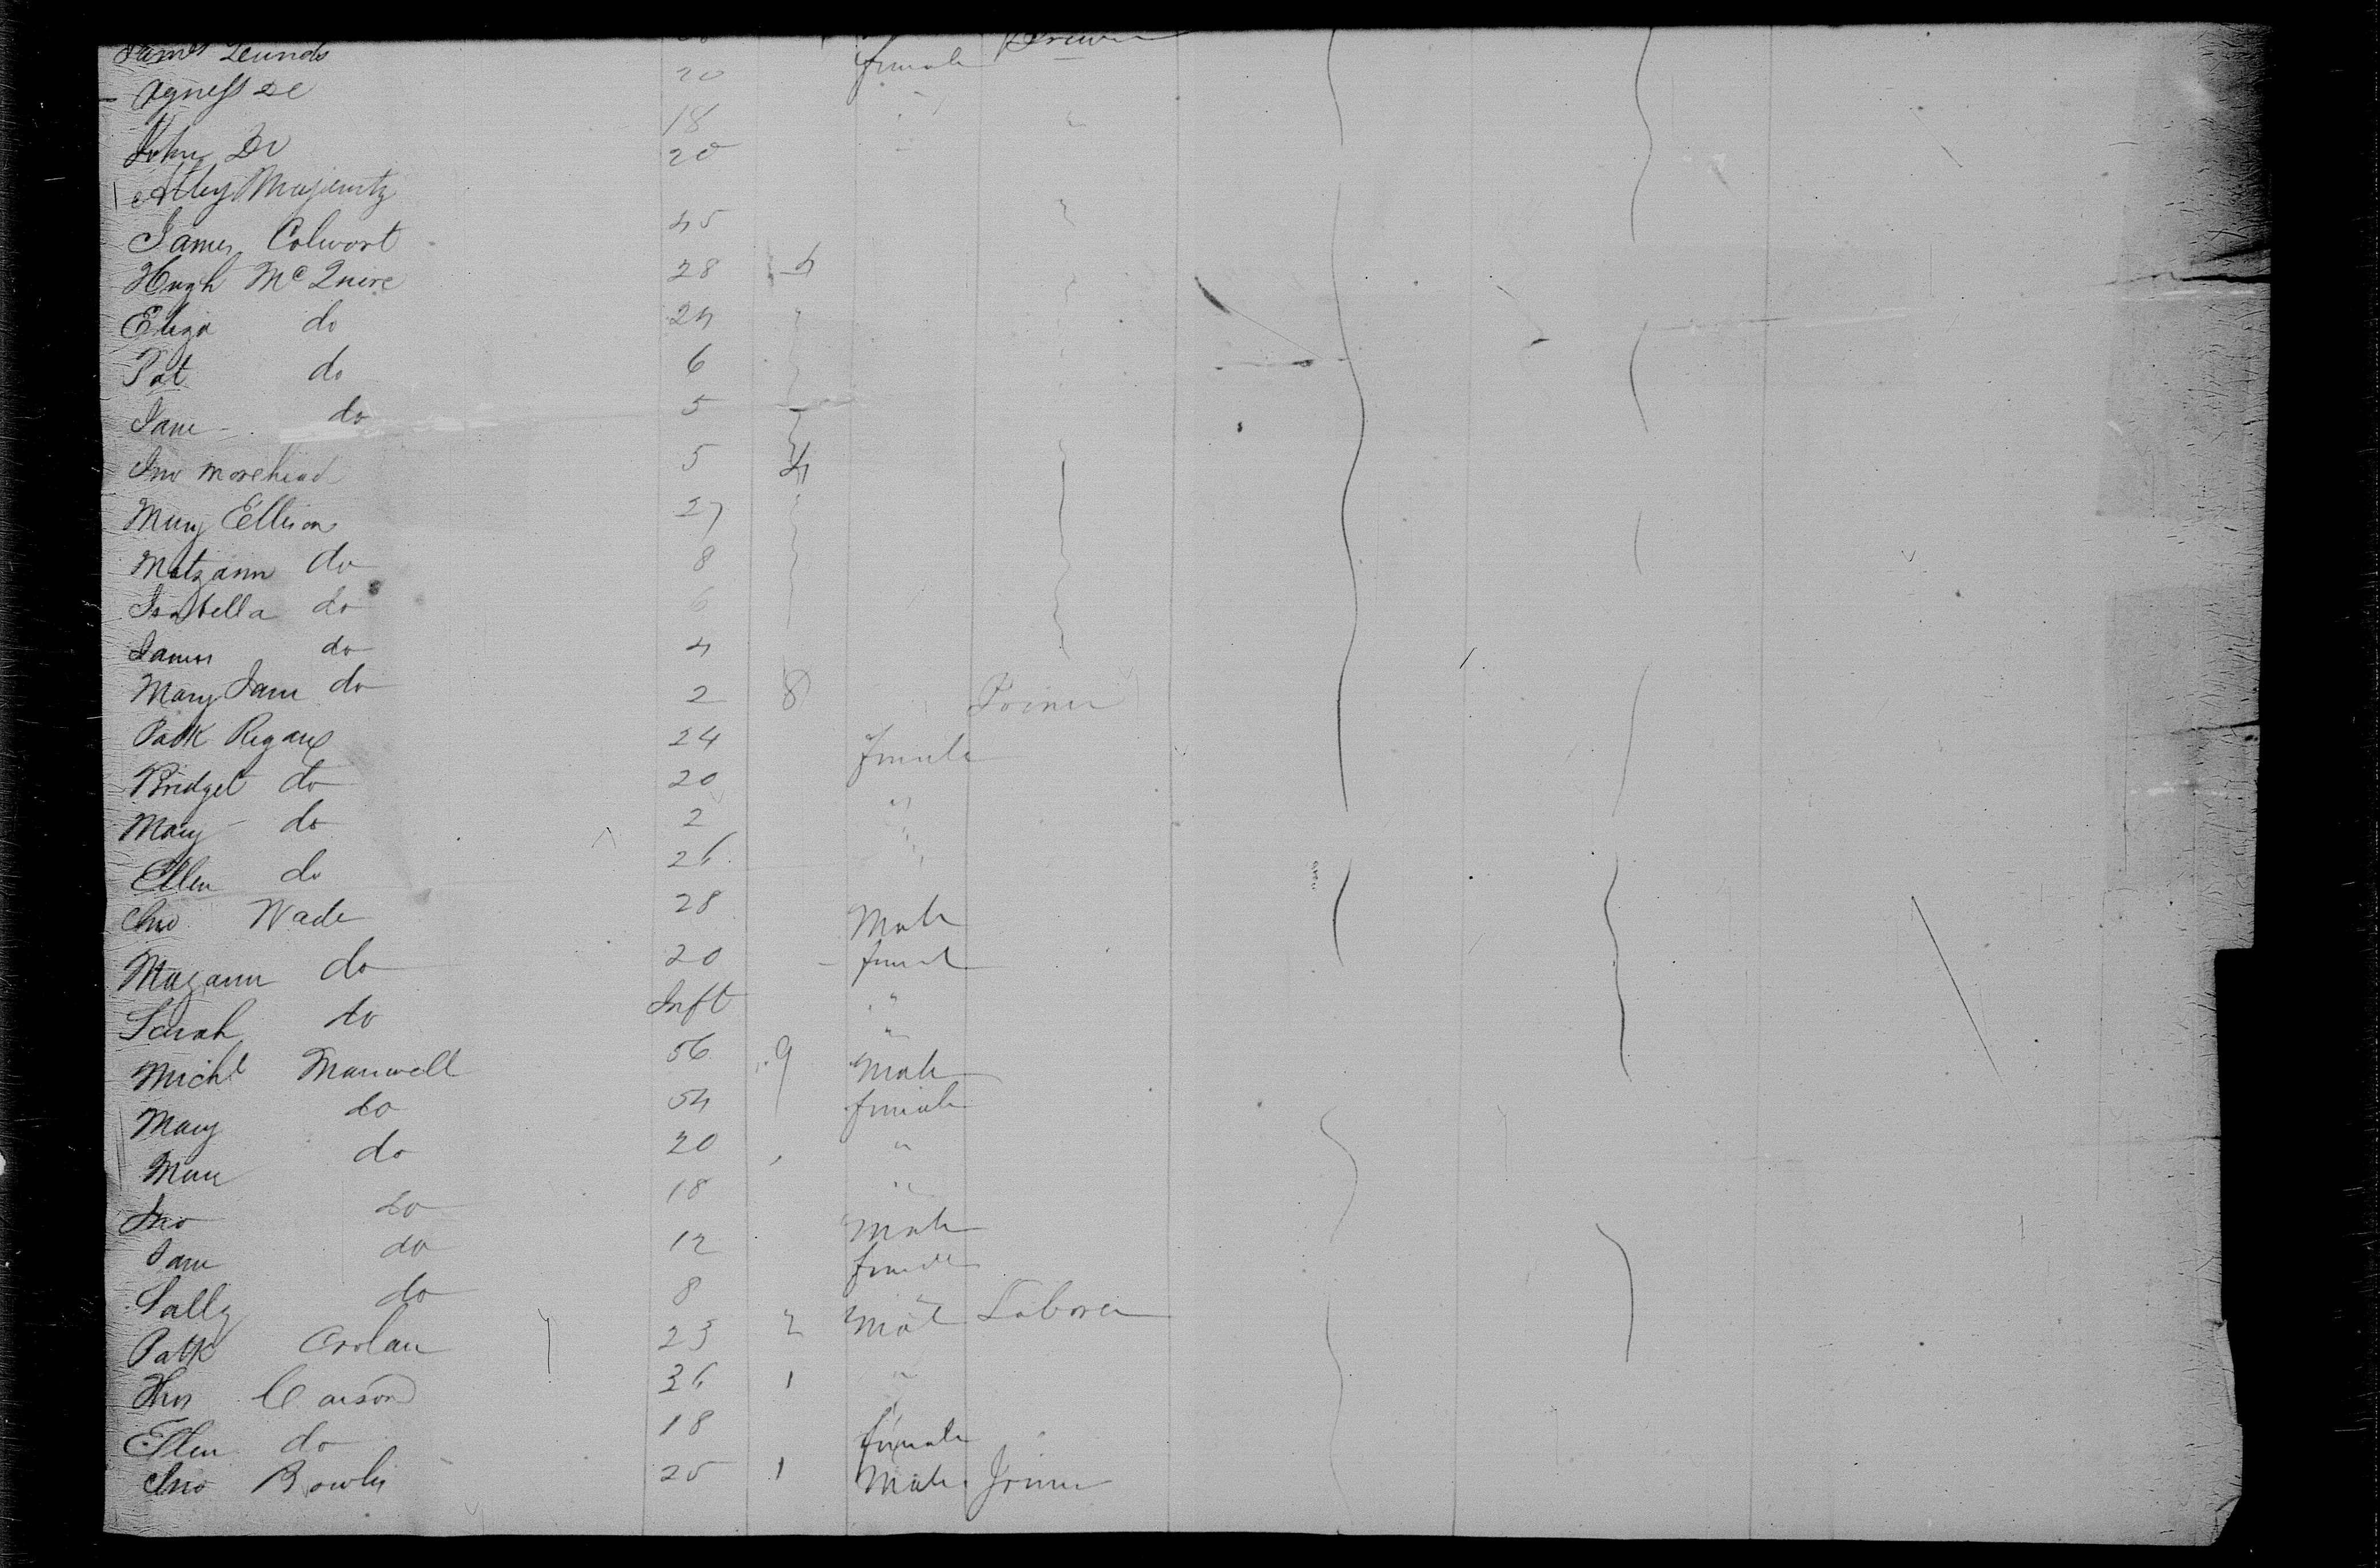 James
20 female
Agness Do
18 "
John Do 20
James Colwort 45
Hugh Mc Quire 28 4
Eliza do 24
Pat do 6
Jane do 5
Jno Morehead 5 4
Mary Ellison 27
Matzann do 8
Isabella do 6
James do 4
Mary Jane do 2 8
Patk Regan 24 female
Bridget do 20 "
Mary do 2
Ellen do 26
Jno Wade 28 Male
Mazann do 20 female
Sarah do Inft "
Michl Manwell 56 9 Male
Mary do 54 female
do 20 "
Jno do 18 " Male
Jane do 12 female
Sally do 8
Patk Crolan 23 2 Male Laborer
Thos Carson 36 1 "
Ellen do 18 female
Jno Bowles 25 1 Male